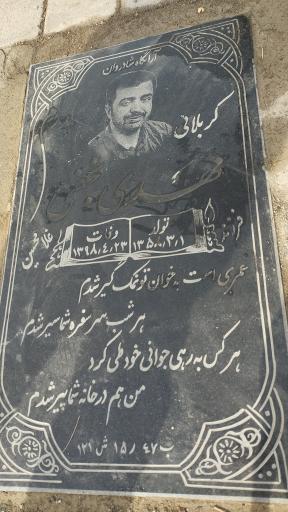 آرامگاه شادروان
کربلائی
مهدی
فرزند
تولد
۱۳۵۰/۳/۱
وفات
۱۳۹۸/۴/۲۳
عمری است به خوان تو نمک گیر شدم
هر شب سر سفره شما سیر شدم
هر کس به رهی جوانی خود طی کرد
من هم در خانه شما پیر شدم
ب ۴۷ ر ۱۵ ش ۱۳۱